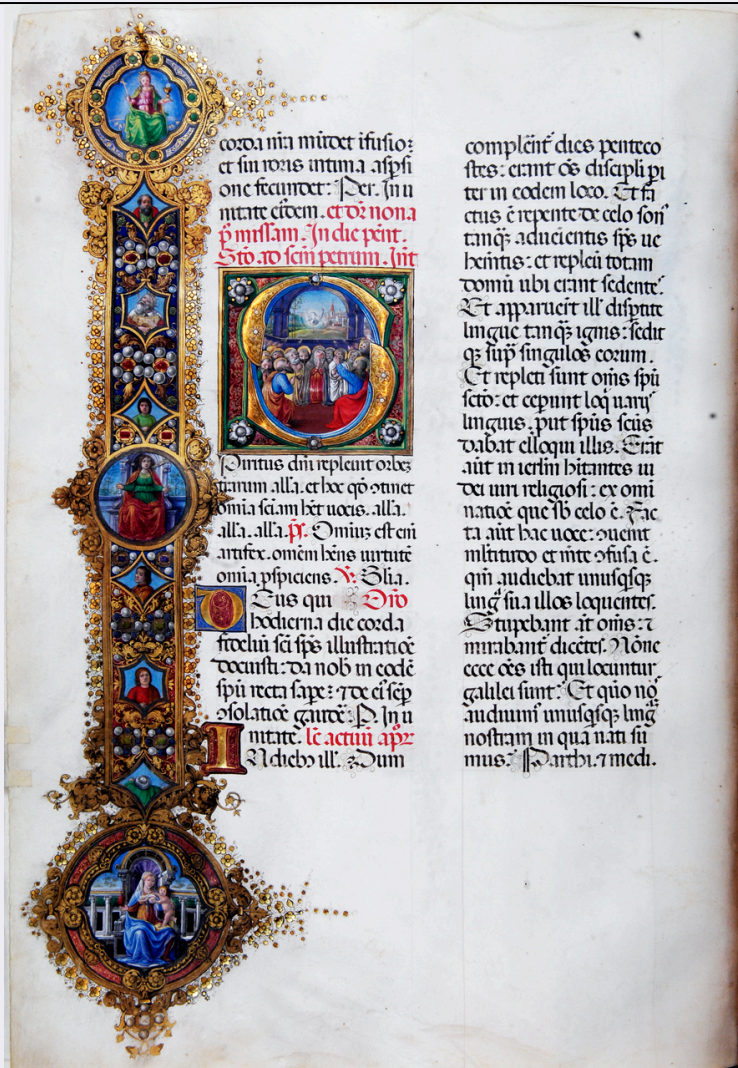 corda nr̄a mūdet ifusio:
et sui roris intima asp̄si
one fecundet: Per. In u
nitate eiusdem. et dr̄ nona
p̄ missam. In die pent.
Stō. ad scm̄ petrum. Int̄
S
Piritus dn̄i repleuit orbeʒ
terrarum all'a. et hoc qō ↄtinet
omīa sciam h̄et uocis. all'a.
all'a. all'a. p̄s. Omius est eni
artifex. omēm hēns uirtutē
omīa ꝓspiciens. ℣. Glīa.
D Eus qui Orō
hodierna die corda
fideliū sc̄i sp̄s illustratiōe
docuisti: da nob̄ in eodē
spū recta sape: ⁊ de ei' sēp
ↄsolatiōe gaudē: P. In u
nitate. Lc̄ actuū apl̄r
I N dieb3 ill'. Dum
complēn̄t dies penteco
stes: erant ōs discipli pi
ter in eodem loco. Et fa
ctus ē repente de celo son'
tanqʒ aduenientis sp̄s ue
hemtis: et repleū totam
domū ubi erant sedente'.
Et apparuer̄t ill' disp̄tite
lingue tanqʒ ignis: sedit
qʒ sup̄ singulos eorum.
Et repleti sunt om̄s spū
sctō: et ceperunt loq̄ uarij'
linguis. put sp̄us scūs
dabat elloqui illis. Erāt
aūt in ierl̄m h̄itantes iu
dei uiri religiosi: ex omī
natiōe que sb̄ celo ē. Fac
ta aūt hac uoce: ↄuenit
ml̄titudo et mēte ↄfusa ē.
qm̄ audiebat unusq̄sqʒ
ling' sua illos loquentes.
Stupebant aūt om̄s: ⁊
mirabant' dicētes. Nōne
ecce oēs isti qui locuntur
galilei sunt: Et quō nos'
audiuim' unusq̄sqʒ ling'
nostram in qua nati su
mus: Parthi. ⁊ medi.